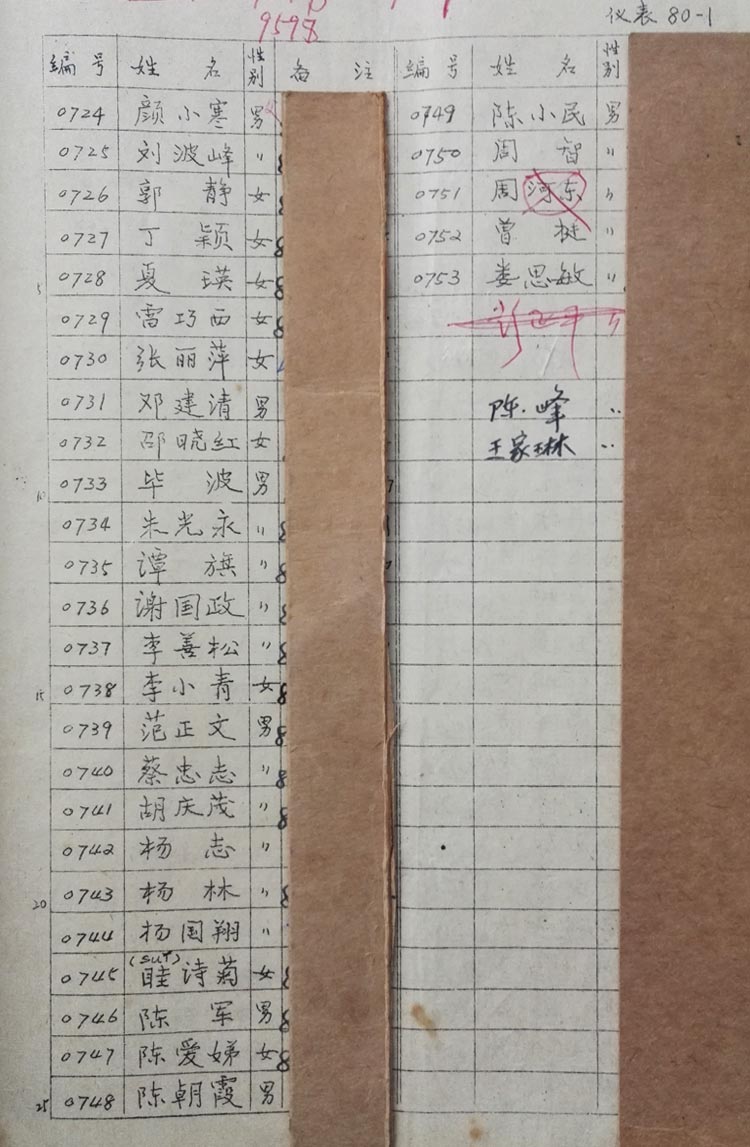 9598
仪表 80-1
编号 姓名 性别 备注 编号 姓名 性别
0724 颜小寒 男 0749 陈小民 男
0725 刘波峰 〃 0750 周智 〃
0726 郭静 女 0751 周河东 〃
0727 丁颖 女 0752 曾挺 〃
5 0728 夏瑛 女 0753 娄思敏 〃
0729 雷巧西 女 〃
0730 张丽萍 女
0731 邓建清 男 陈峰 〃
0732 邵晓红 女 王家琳 〃
10 0733 毕波 男
0734 朱光永 〃
0735 谭旗 〃
0736 谢国政 〃
0737 李善松 〃
15 0738 李小青 女
0739 范正文 男
0740 蔡忠志 〃
0741 胡庆茂 〃
0742 杨志 〃
20 0743 杨林 〃
0744 杨国翔 〃
0745 (SUI)眭诗菊 女
0746 陈军 男
0747 陈爱娣 女
25 0748 陈朝霞 男